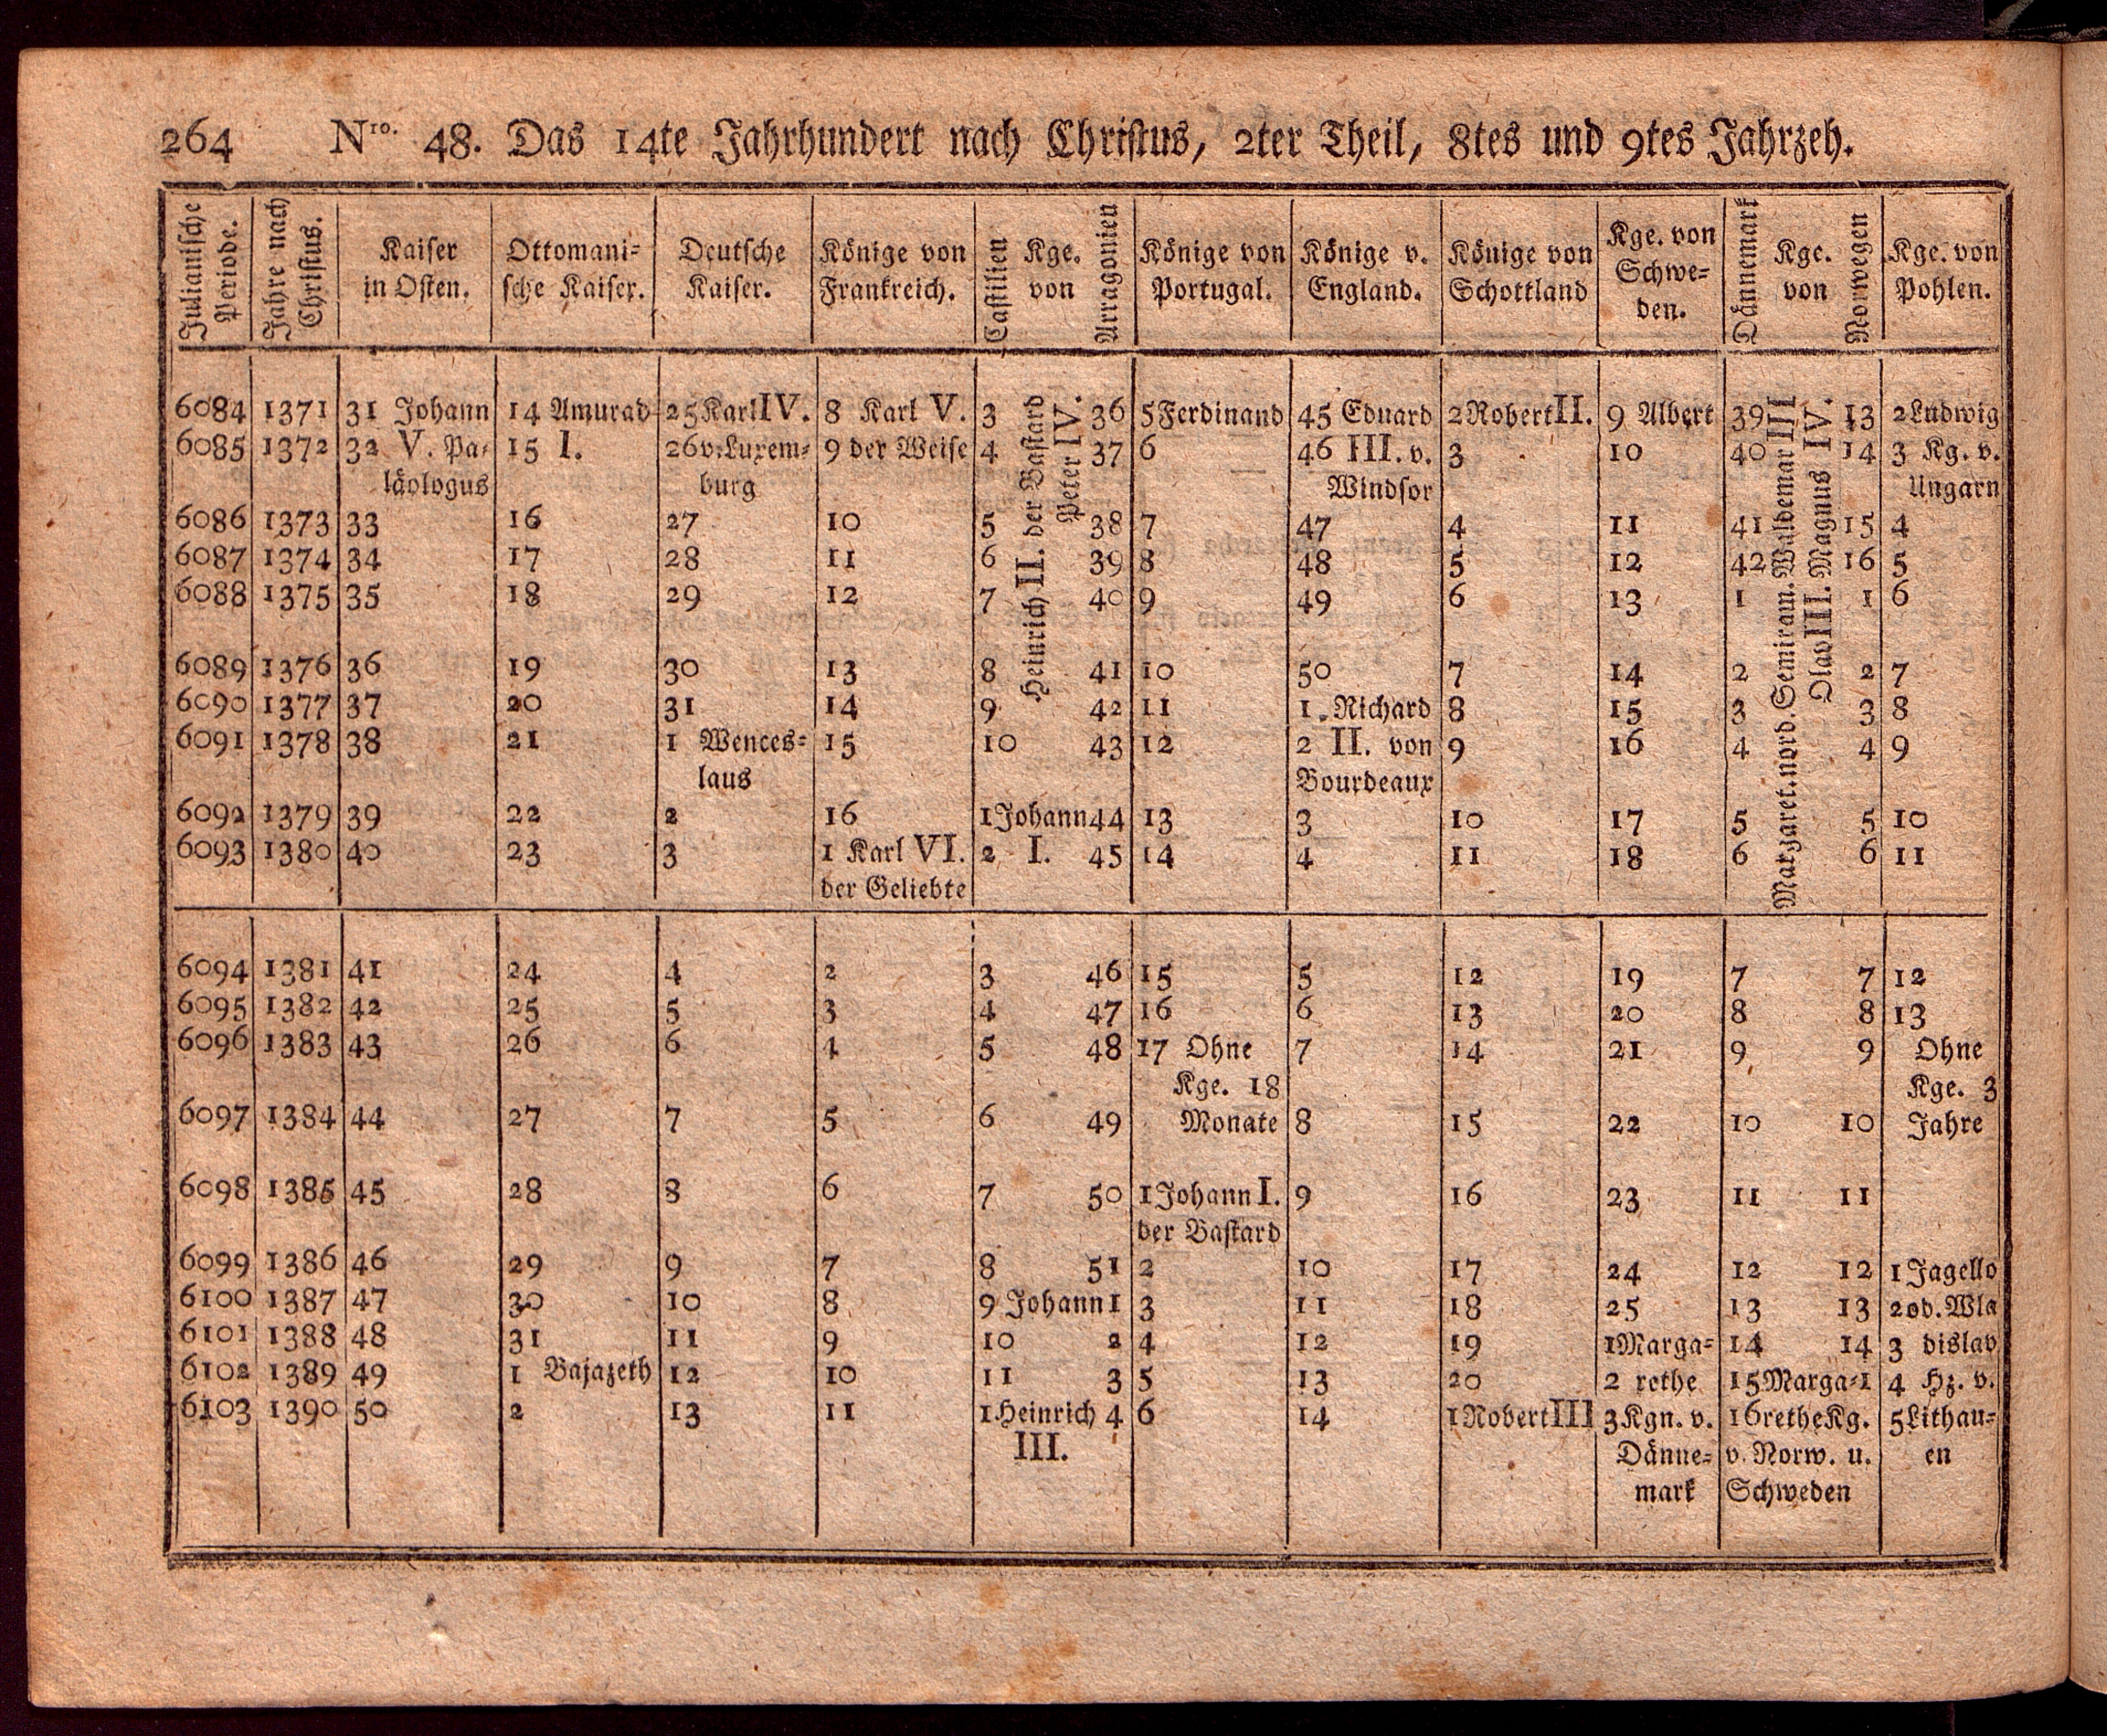 264 Nro. 48. Das 14te Jahrhundert nach Christus, 2ter Theil, 8tes und 9tes Jahrzeh.
Julianische Periode. | Jahre nach Christus. | Kaiser in Osten. | Ottomani= sche Kaiser. | Deutsche Kaiser. | Könige von Frankreich. | Castilien Kge. von Arragonien | Könige von Portugal. | Könige v. England. | Könige von Schottland | Kge. von Schwe= den. | Dännemark Kge. von Norwegen | Kge. von Pohlen.
Heinrich II. der Bastard
Peter IV.
Margaret. nord. Semiram. Waldemar III
Olav III. Magnus IV.
6084 1371 31 Johann 14 Amurad 25 Karl IV. 8 Karl V. 3 36 5 Ferdinand 45 Eduard 2 Robert II. 9 Albert 39 13 2 Ludwig
6085 1372 32 V. Pa= 15 I. 26 v. Luxem= 9 der Weise 4 37 6 46 III. v. 3 10 40 14 3 Kg. v.
läologus burg Windsor Ungarn
6086 1373 33 16 27 10 5 38 7 47 4 11 41 15 4
6087 1374 34 17 28 11 6 39 8 48 5 12 42 16 5
6088 1375 35 18 29 12 7 40 9 49 6 13 1 1 6
6089 1376 36 19 30 13 8 41 10 50 7 14 2 2 7
6090 1377 37 20 31 14 9 42 11 1 Richard 8 15 3 3 8
6091 1378 38 21 1 Wences= 15 10 43 12 2 II. von 9 16 4 4 9
laus Bourdeaux
6092 1379 39 22 2 16 1 Johann 44 13 3 10 17 5 5 10
6093 1380 40 23 3 1 Karl VI. 2 I. 45 14 4 11 18 6 6 11
der Geliebte
6094 1381 41 24 4 2 3 46 15 5 12 19 7 7 12
6095 1382 42 25 5 3 4 47 16 6 13 20 8 8 13
6096 1383 43 26 6 4 5 48 17 Ohne 7 14 21 9 9 Ohne
Kge. 18 Kge. 3
6097 1384 44 27 7 5 6 49 Monate 8 15 22 10 10 Jahre
6098 1385 45 28 8 6 7 50 1 Johann I. 9 16 23 11 11
der Bastard
6099 1386 46 29 9 7 8 51 2 10 17 24 12 12 1 Jagello
6100 1387 47 30 10 8 9 Johann 1 3 11 18 25 13 13 2 od. Wla
6101 1388 48 31 11 9 10 2 4 12 19 1 Marga= 14 14 3 dislav
6102 1389 49 1 Bajazeth 12 10 11 3 5 13 20 2 rethe 15 Marga= 1 4 Hz. v.
6103 1390 50 2 13 11 1 Heinrich 4 6 14 1 Robert III 3 Kgn. v. 16 rethe Kg. 5 Lithau=
III. Dänne= v. Norw. u. en
mark Schweden